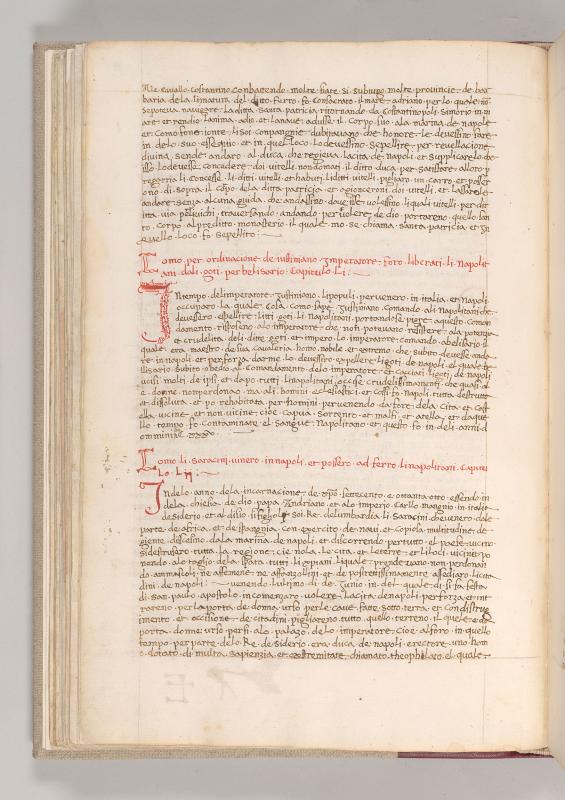 cavallo costantino conbattendo molte fiate si subiugo molte provincie de bar
baria de la limatura del ditto ferro fo consacrato il mare adriano per lo quale no
se poteva navigare La ditta santa patricia ritornando da Costantinopoli si morio in mi
are et rendio lanima adio et la nave adusse il corpo suo ala marina de napole
et como fone ionte li soi conpangnie dubitavano che honore le devessino fare
in delo suo essequio et in quel loco lo devessino sepellire per revellacione
divina sende andaro al duca che regieva la cita de napoli et supplicarelo de
sso lo devesse concedere doi vitelli non domati il ditto duca per satisfare a loro p
regaria li concesse li ditti vitelli et habuti li ditti vitelli pigliaro un carro et poser
ono di sopra il corpo dela ditta patricia et agionceroni doi vitelli et lassarole
andare senza alcuna guida che andassino dove isse volessino li quali vitelli per dit
ta via traversando andando per volere de dio portareno quello san
to corpo al preditto monasterio il quale mo se chiama santa patricia et in
quello loco fo sepellito
Como per ordinacione de iustiniano imperatore foro liberati li napolit
ani dali goti per belisario Capitulo Li
In tempo del imperatore iustiniano li populi pervenero in italia et napoli
occuparo la quale cosa como sape iustiniano comando ali napolitani che
devessero espellire li ditti goti li napolitani portandose pigre aquesto coman
damento risposeno alo imperatore che non potevano resistere ala potenzia
et crudelita deli ditte goti et impero lo imperatore comando abelisario il
quale era maestro de sua cavalaria homo nobile et estremo che subito devesse anda
re in napoli et per forza darme lo devessero expellere li goti de napoli el quale be
llisario subito obedio al comandamento delo imperatore et cacciati li goti de napoli
ucisi molti de ipsi et dapo tutti li napolitani occise crudelissimamenti che quasi al
e donne non perdonao ma ali homini ecclesiastici et cossi fo napoli tutta destrutta
et dissoluta et po rehabitata per homini pervenendo da fore dela cita et cast
ella vicine et non vicine cioe capua sorrento et malfi et atella et daque
llo tempo fo contaminare el sangue napolitano et questo fo in deli anni d
omini
Como li saracini vinero in napoli et possero ad ferro li napolitani Capitu
lo Lii
In delo anno dela incarnacione de settecento e ottanta otto essendo in
dela chiesia de dio papa Andriano et alo imperio Carllo mangnio in italia
de siderio et al disio li figliolo soi Re de lumbardia li Saracini che venero dale
parte de africa et de spangnia con exercito de navi et copiosa multitudine de
giente discesino dala marina de napoli et discorrendo per tutto el paese vicino
si destrussero tutta la regione cie nola le cita et le terre et li loci vicine po
nendo alo taglio dela spata tutti li cristiani li quale prendevano non perdonan
do ammascoli ne affemene ne affanzollini et de postremissimamente assediaro li cita
dini de napoli venendo lultimo di de iunio in del quale di si fa festa
di san paulo apostolo incomenzaro volere la cita de napoli per forza et int
rareno per la porta de donna urso per le cave fatte sotto terra et con distrue
imento et occisione de citadini pigliareno tutto quello terreno il quale e da
porta donne urso perfi alo palazo delo imperatore cioe alforo in quello
tempo per parte delo Re de siderio era duca de napoli e rectore uno hom
o dotato di multa sapienzia et extremitate chiamato theophilato el quale